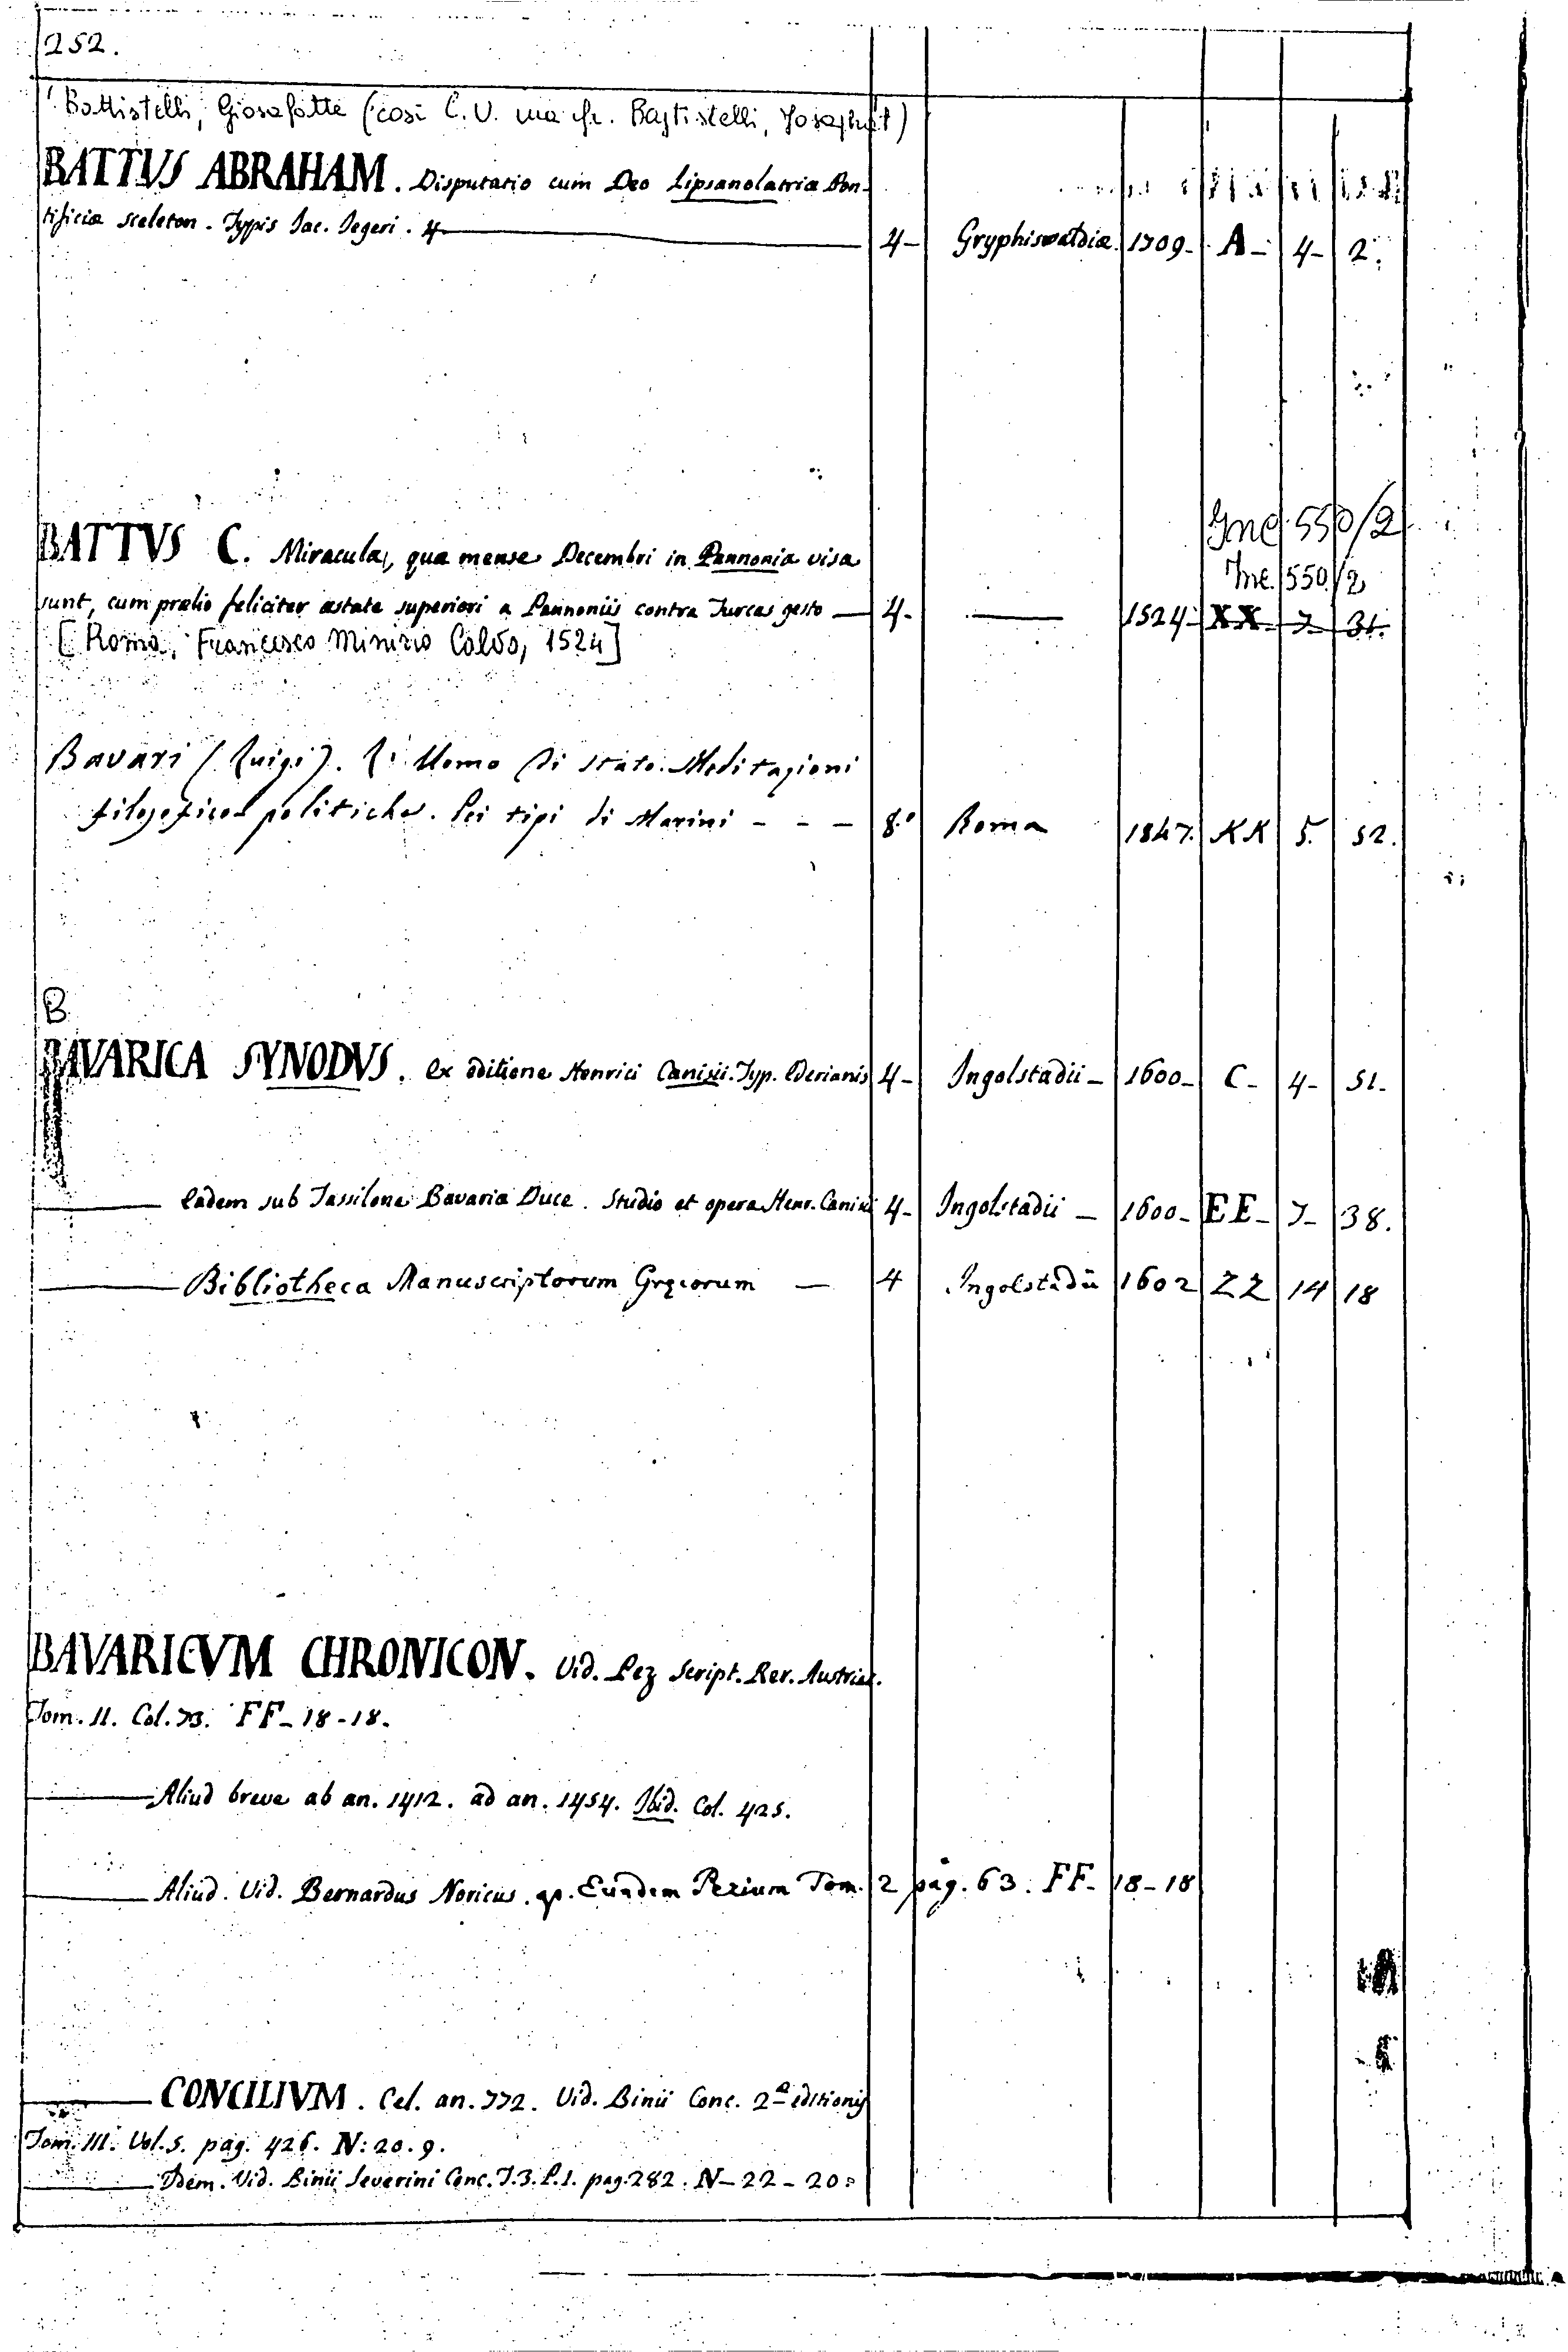 252.
Battistelli, Giosafatte (così C. V. ma cfr. Baptistelli, Josaphat)
BATTVS ABRAHAM. Disputatio cum Deo Lipsanolatriæ Pon-
tificiæ sceleton. Typis Jac. Jegeri. 4 — 4- Gryphiswaldiæ 1709- A- 4- 2.
Inc 550/2
BATTVS C. Miracula, quæ mense Decembri in Pannonia visa
Inc. 550/2
sunt, cum prælio feliciter æstate superiori a Pannoniis contra Turcas gesto — 4- — 1524- XX- 7- 31.
[Roma, Francesco Minizio Calvo, 1524]
Bavari (Luigi). L'Uomo di stato. Meditazioni
filosofico politiche. Pei tipi di Marini - - - 8.° Roma 1847. KK 5. 52.
B
BAVARICA SYNODVS. ex editione Henrici Canisii. Typ. Ederianis 4- Ingolstadii- 1600- C- 4- 51-
— Eadem sub Tassilone Bavariæ Duce. Studio et opera Henr. Canisii 4- Ingolstadii - 1600- EE- 7- 38.
— Bibliotheca Manuscriptorum Gręcorum — 4 Ingolstadii 1602 ZZ 14 18
BAVARICVM CHRONICON. Vid. Pez Script. Rer. Austriac.
Tom. II. Col. 73. FF-18-18.
— Aliud breve ab an. 1412. ad an. 1454. Ibid. Col. 425.
— Aliud. Vid. Bernardus Noricus. ap. Eundem Pezium Tom. 2 pag. 63. FF- 18-18
— CONCILIVM. Cel. an. 772. Vid. Binii Conc. 2ª editionis
Tom. III. Vol. 5. pag. 426. N: 20. 9.
— Idem. Vid. Binii Severini Conc. T. 3. P. 1. pag. 282. N-22-20.